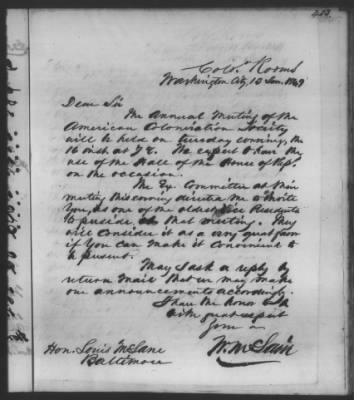 Colo. Rooms
Washington City, 10 Jan. 1849
Dear Sir
The Annual Meeting of the
American Colonization Society
will be held on tuesday evening, the
16 inst. at 7 We expect to have the
use of the Hall of the House of Reps
on the occasion.
The Ex. Committee at their
meeting this evening directed me to invite
You, as one of the oldest Vice Presidents
to preside at that meeting. They
will consider it as a very great favor
if you can make it convenient to
be present.
May I ask a reply by
return mail that we may make
our announcements accordingly.
I have the honor to be
with great respect
Yours
W. McLain
Hon. Louis McLane
Baltimore